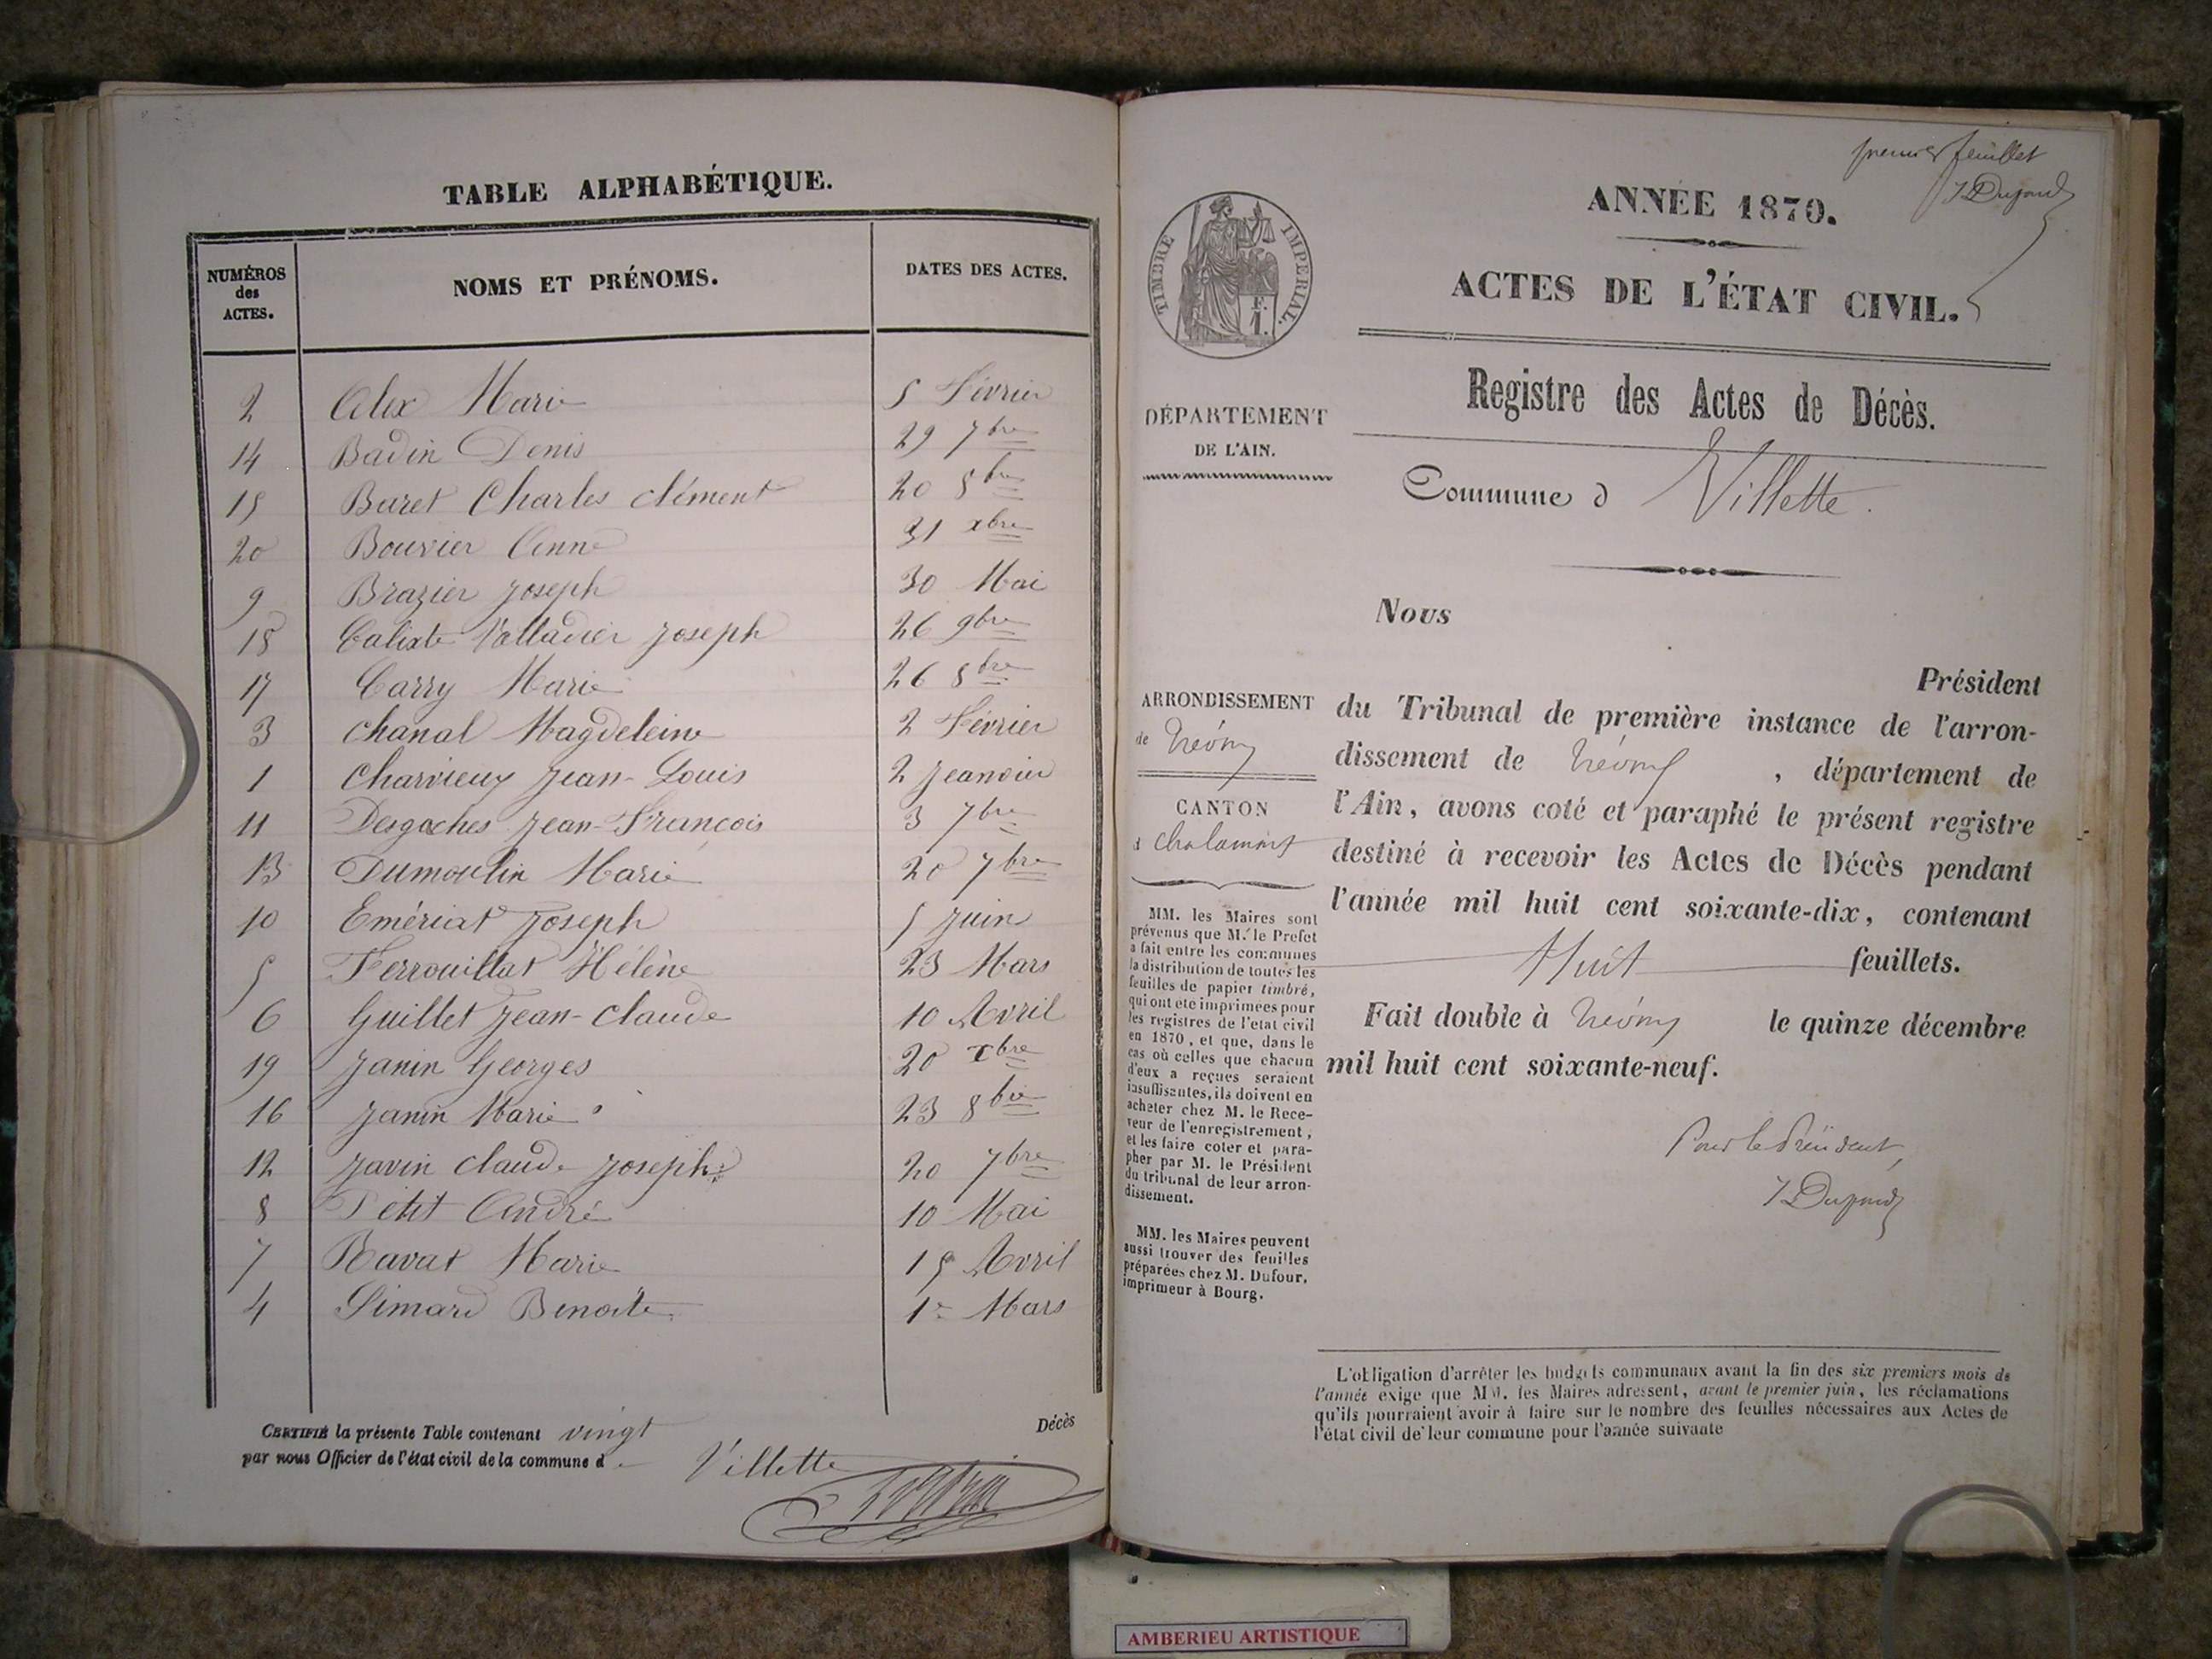 TABLE ALPHABÉTIQUE.
NUMÉROS des ACTES. NOMS ET PRÉNOMS. DATES DES ACTES.
2 Alex Marie 5 Février
14 Badin Denis 29 7bre
15 Baret Charles clément 20 8bre
20 Bouvier Anne 31 xbre
9 Brazier Joseph 30 Mai
18 Calixte Valladier Joseph 26 9bre
17 Carry Marie 26 8bre
3 Chanal Magdeleine 2 Février
1 Charvieux Jean-Louis 2 Jeanvier
11 Desgaches Jean-François 3 7bre
13 Dumoulin Marie 20 7bre
10 Emériat Joseph 5 Juin
5 Ferrouillat Hélène 23 Mars
6 Guillet Jean-Claude 10 Avril
19 Janin Georges 20 xbre
16 Janin Marie 23 8bre
12 Javin Claude Joseph 20 7bre
8 Petit André 10 Mai
7 Ravat Marie 15 Avril
4 Simard Benoite 1er Mars
CERTIFIÉ la présente Table contenant vingt Décès
par nous Officier de l'état civil de la commune d Villette
premier feuillet
ANNÉE 1870.
ACTES DE L'ÉTAT CIVIL.
TIMBRE IMPERIAL.
F.
1.
Registre des Actes de Décès.
DÉPARTEMENT
DE L'AIN.
Commune d Villette.
Nous
Président
ARRONDISSEMENT
de Trévoux
CANTON
d Chalamont
MM. les Maires sont
prévenus que M. le Prefet
a fait entre les communes
la distribution de toutes les
feuilles de papier timbré,
qui ont eté imprimées pour
les registres de l'etat civil
en 1870, et que, dans le
cas où celles que chacun
d'eux a reçues seraient
insuffisantes, ils doivent en
acheter chez M. le Rece-
veur de l'enregistrement,
et les faire coter et para-
pher par M. le Président
du tribunal de leur arron-
dissement.
MM. les Maires peuvent
aussi trouver des feuilles
préparées chez M. Dufour,
imprimeur à Bourg.
du Tribunal de première instance de l'arron-
dissement de Trévoux , département de
l'Ain, avons coté et paraphé le présent registre
destiné à recevoir les Actes de Décès pendant
l'année mil huit cent soixante-dix, contenant
Huit feuillets.
Fait double à Trévoux le quinze décembre
mil huit cent soixante-neuf.
Pour le Président,
L'obligation d'arrêter les budgets communaux avant la fin des six premiers mois de
l'année exige que MM. les Maires adressent, avant le premier juin, les réclamations
qu'ils pourraient avoir à faire sur le nombre des feuilles nécessaires aux Actes de
l'état civil de leur commune pour l'année suivante
AMBERIEU ARTISTIQUE